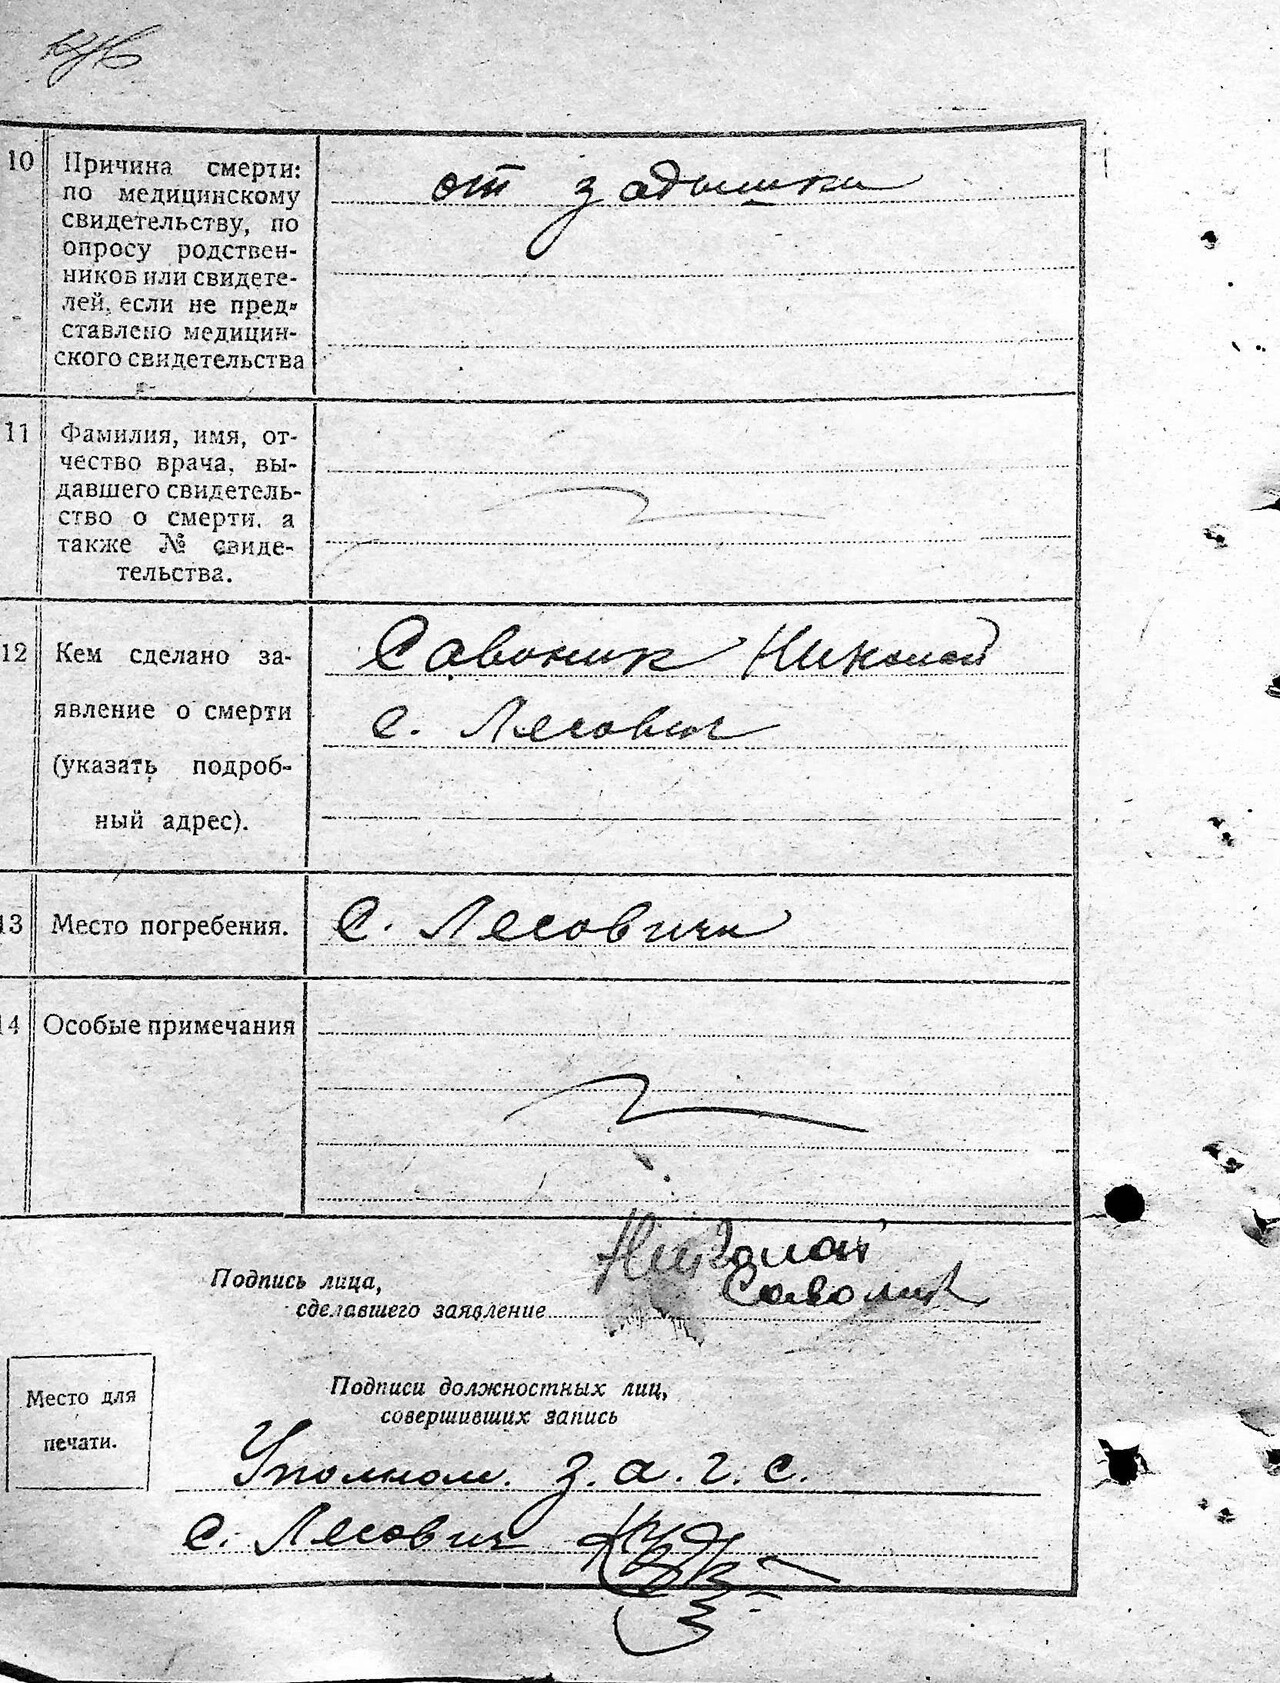 10 Причина смерти: от задышки
по медицинскому
свидетельству, по
опросу родствен-
ников или свидете-
лей, если не пред-
ставлено медицин-
ского свидетельства
11 Фамилия, имя, от-
чество врача, вы-
давшего свидетель-
ство о смерти, а
также № свиде-
тельства.
12 Кем сделано за- Савоник Николай
явление о смерти с. Лесович
(указать подроб-
ный адрес).
13 Место погребения. с. Лесовичи
14 Особые примечания
Подпись лица, Николай
сделавшего заявление Саволик
Место для
печати.
Подписи должностных лиц,
совершивших запись
Уполном. з.а.г.с.
с. Лесович